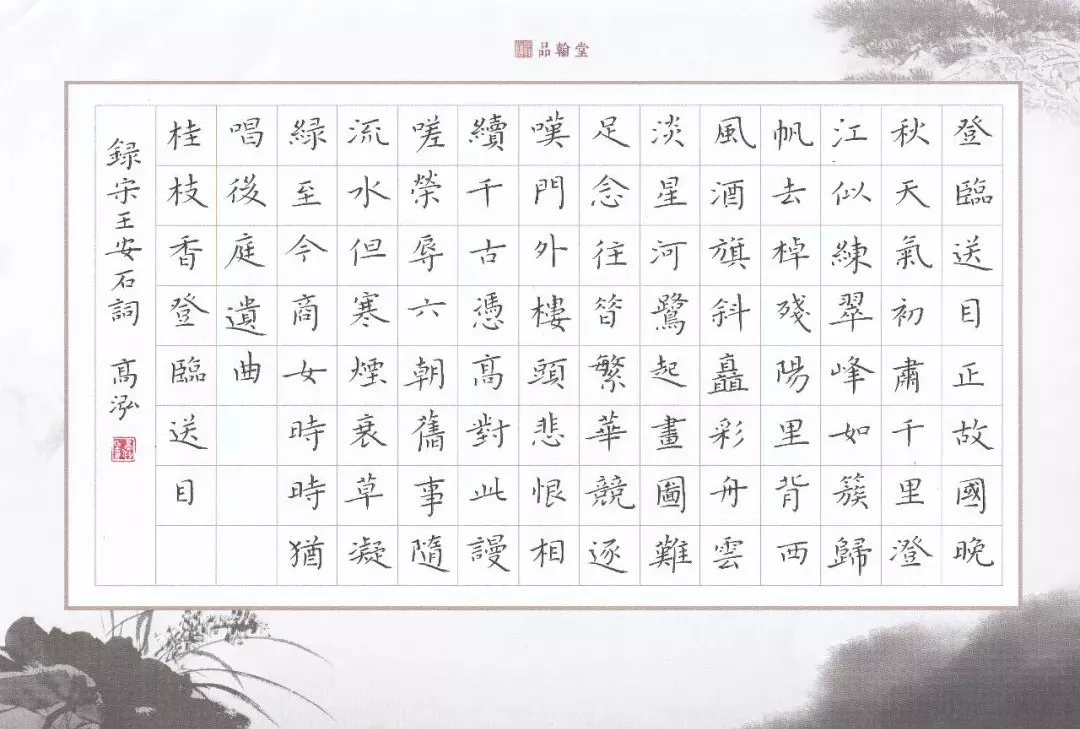 品翰堂
登臨送目正故國晚
秋天氣初肅千里澄
江似練翠峰如簇歸
帆去棹殘陽里背西
風酒旗斜矗彩舟雲
淡星河鷺起畫圖難
足念往昔繁華競逐
嘆門外樓頭悲恨相
續千古憑高對此謾
嗟榮辱六朝舊事隨
流水但寒煙衰草凝
緑至今商女時時猶
唱後庭遺曲
桂枝香登臨送目
録宋王安石詞 高泓